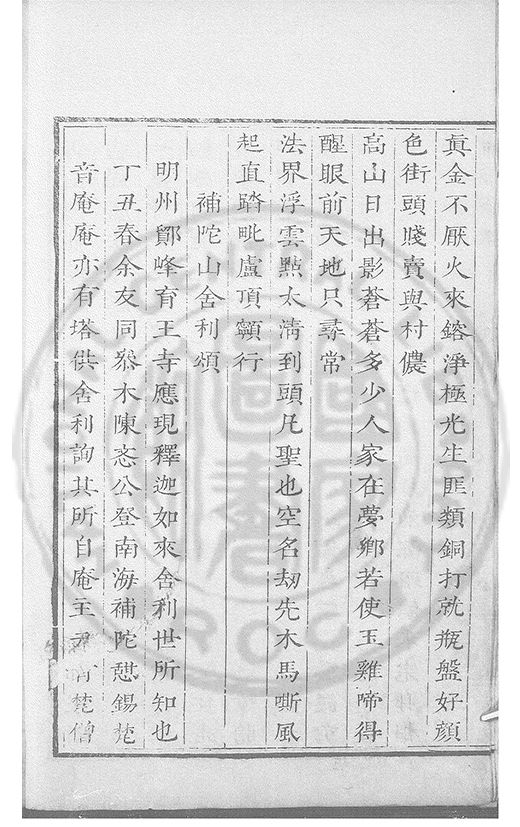 眞金不厭火來鎔淨極光生匪類銅打就瓶盤好顔
色街頭賤賣與村儂
高山日出影蒼蒼多少人家在夢鄉若使玉雞啼得
醒眼前天地只尋常
法界浮雲㸃太清到頭凡聖也空名劫先木馬嘶風
起直踏毗盧頂𩕳行
補陀山舍利頌
明州鄮峰育王寺應現釋迦如來舍利世所知也
丁丑春余友同叅木陳忞公登南海補陀憇錫梵
音庵庵亦有塔供舍利詢其所自庵主梵僧